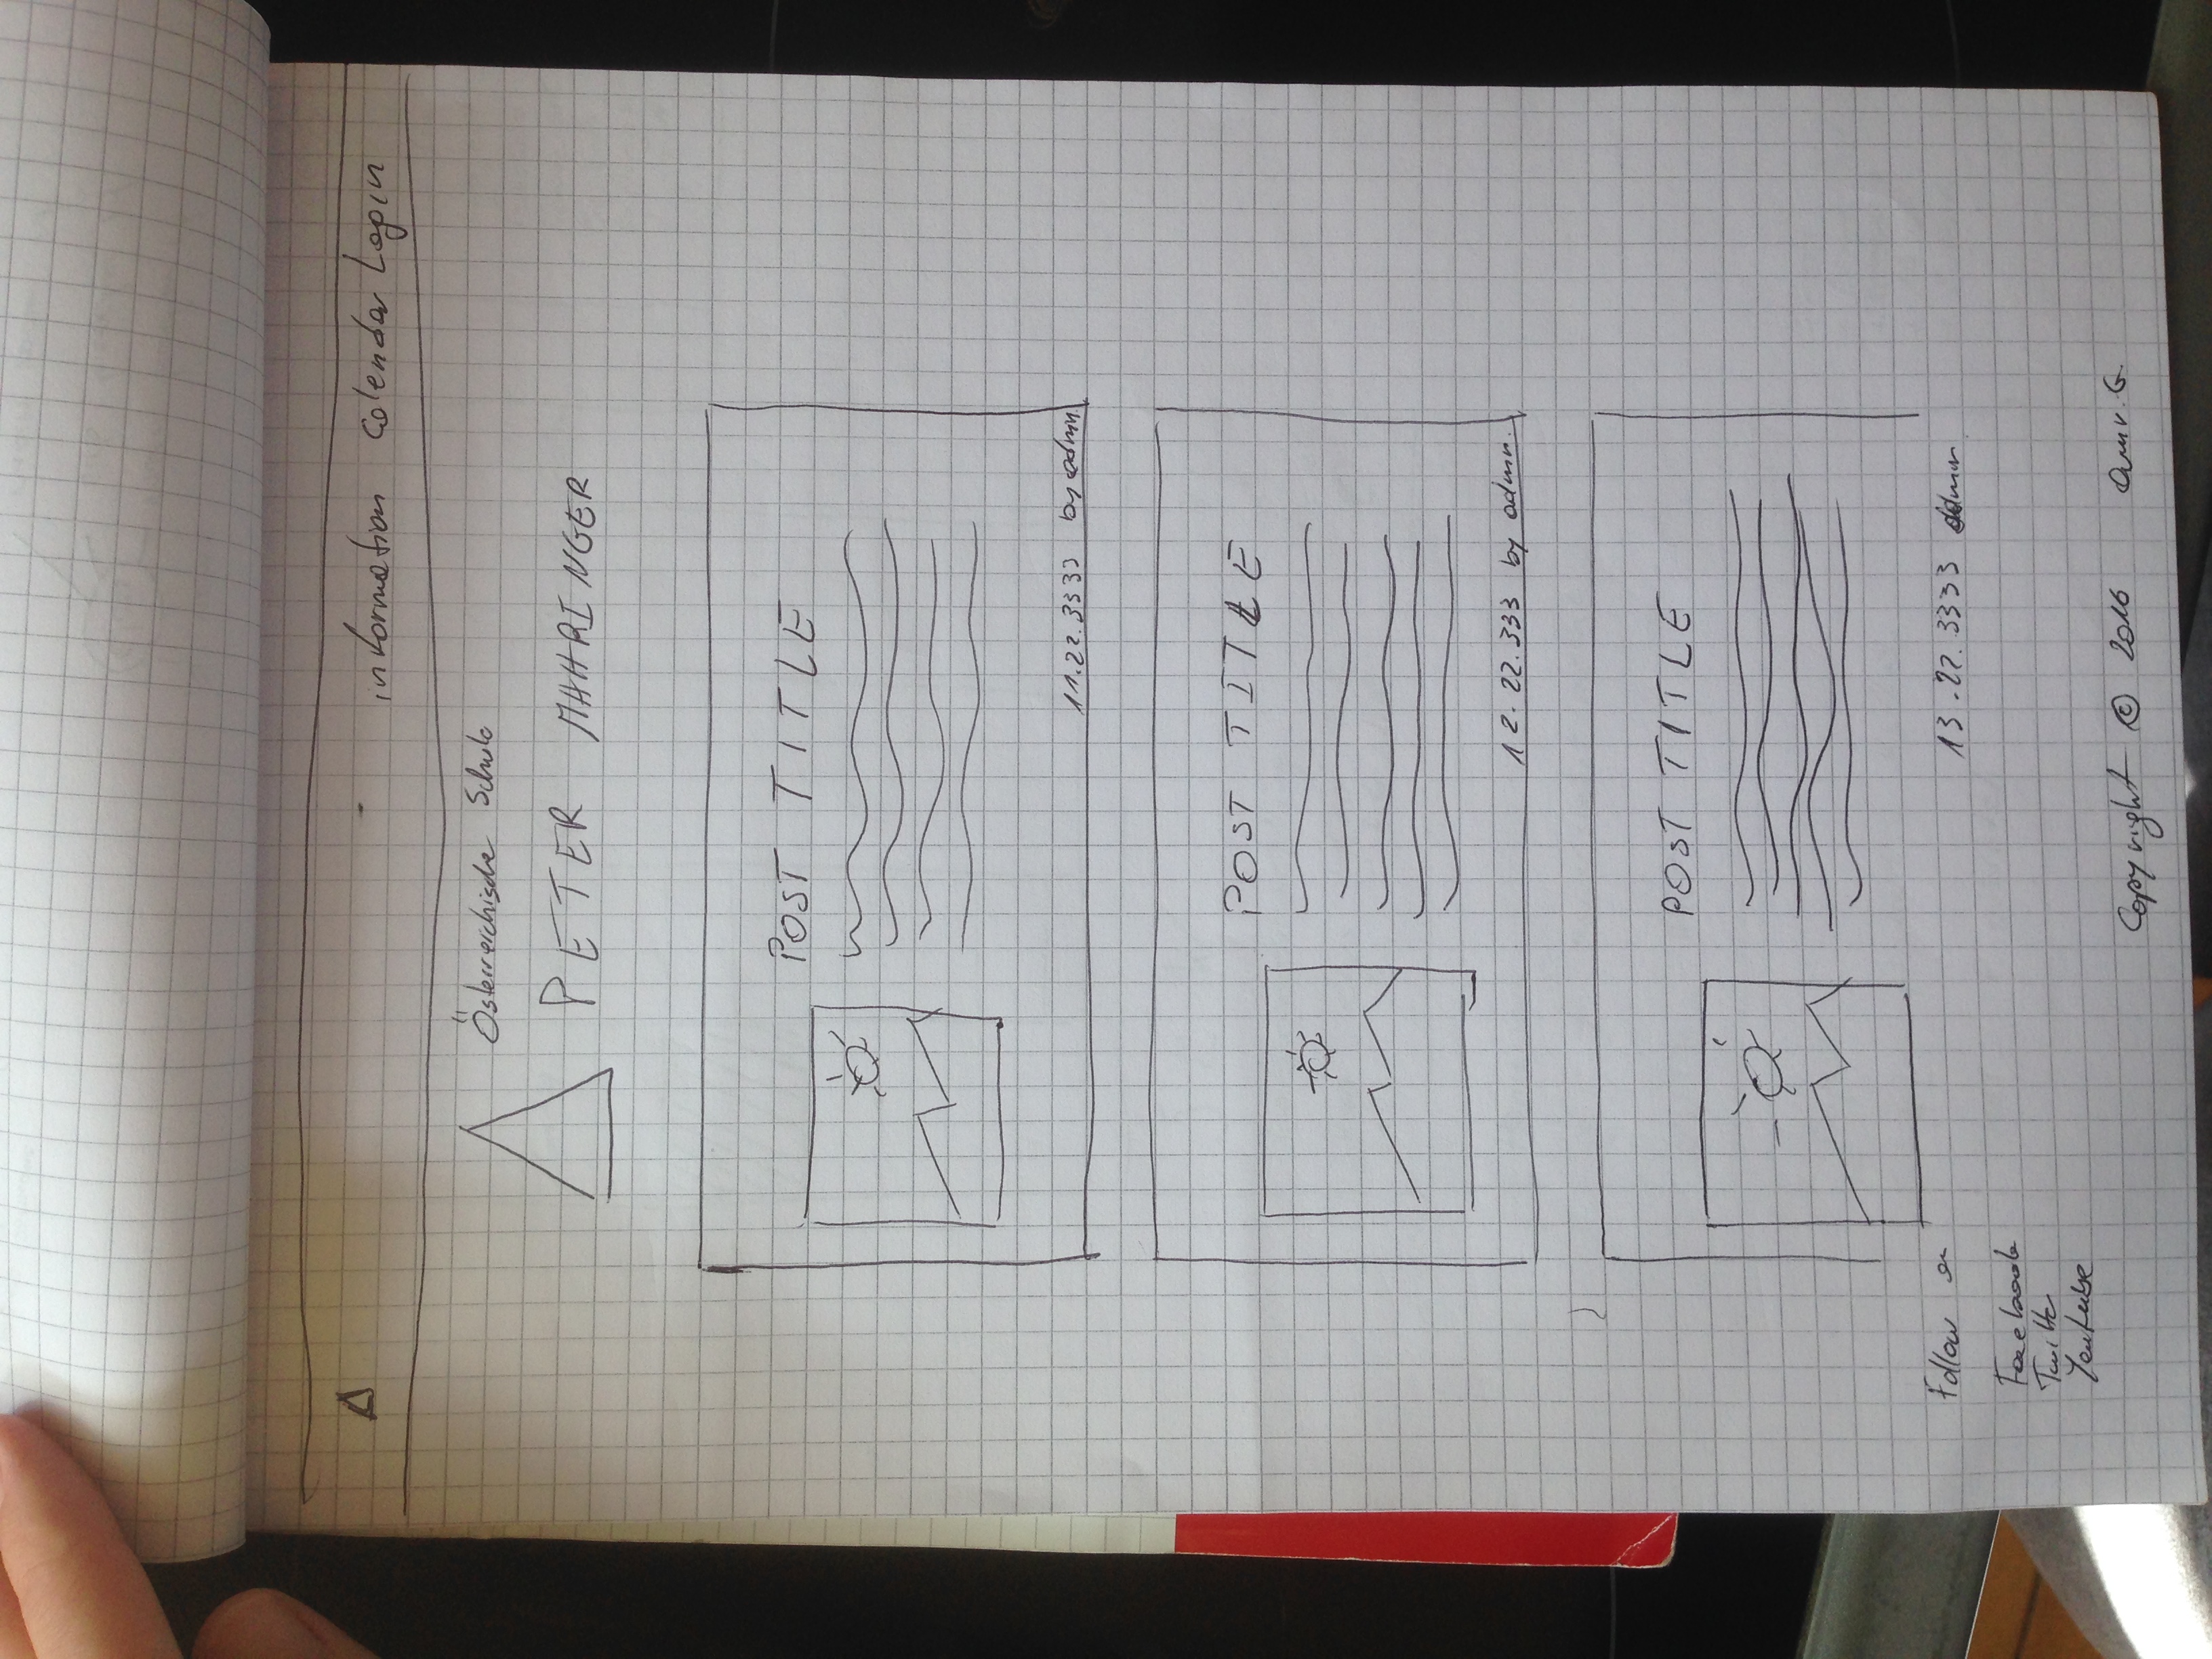 information Calendar Login
Österreichische Schule
PETER MAHRINGER
POST TITLE
11.22.3333 by admin
POST TITLE
12.22.333 by admin.
POST TITLE
13.22.3333 admin
Follow on
Facebook
Twitter
Youtube
Copyright © 2016 Omv. G.